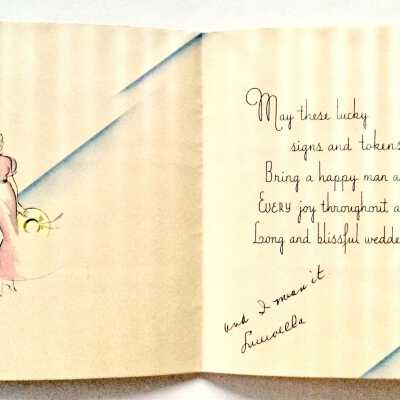 May these lucky
signs and tokens
Bring a happy man a
EVERY joy throughout a
Long and blissful wedde
and I mean it
Luwella